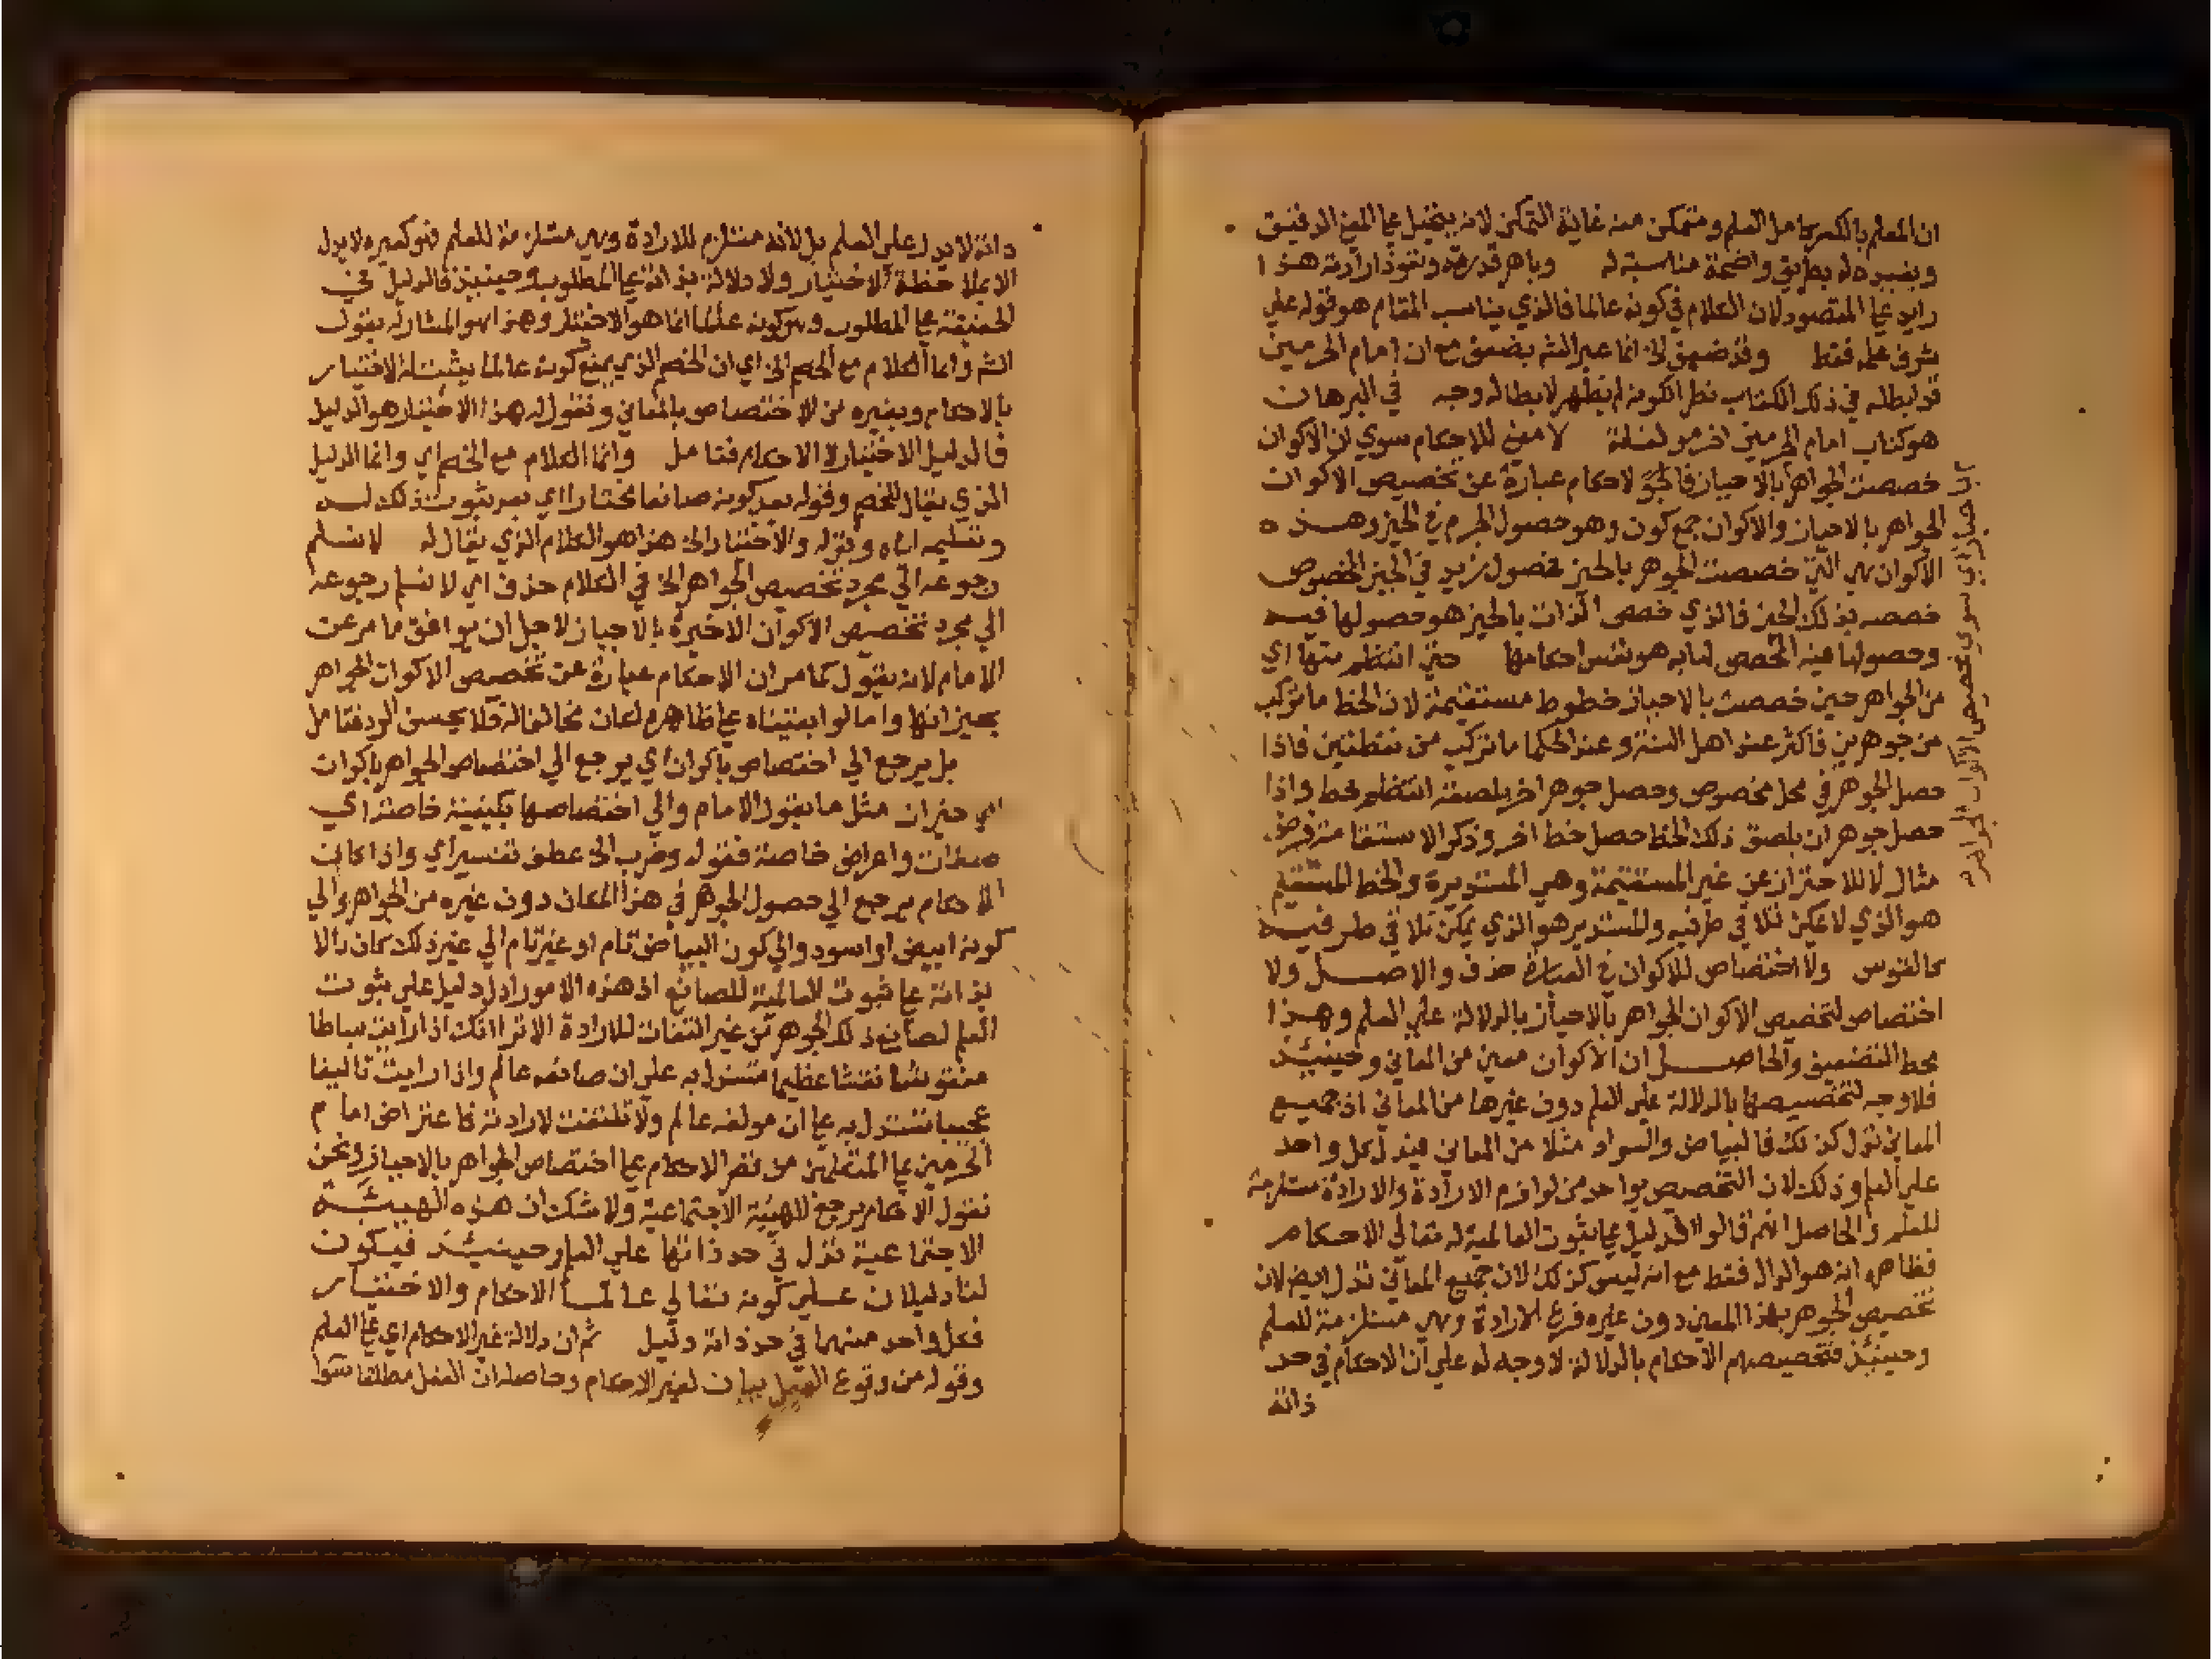 ان المعلم بالكسر كامل العلم ومتمكن منه غاية التمكن لانه يتخيل على المعنى الدقيق
ويفيده له بطريق واضحة مناسبة له وباهر قدرته ونفوذ ارادته هذا
زايد على المقصود لان الكلام في كونه عالما فالذي يناسب المقام هو قوله علي
شرف علمه فقط وقد ضعف الخ انما عبر الشه بضعف مع ان امام الحرمين
قد ابطله في ذلك الكتاب نظرا لكونه لم يظهر لابطاله وجه في البرهان
هو كتاب امام الحرمين لا معنى للاحكام سوي ان الاكوان
خصصت الجواهر بالاحياز لاحكام عبارة عن تخصيص الاكوان
الجواهر بالاحياز والاكوان جمع كون وهو حصول الجرم في الحيز وهذه
الاكوان هي التي خصصت الجوهر بالحيز فحصول زيد في الحيز المخصوص
خصصه بذلك الحيز فالذي خصص الذات بالحيز هو حصولها فيه
وحصولها فيه المخصص لها به هو نفس احكامها حتى انتظم منها اي
من الجواهر حين خصصت بالاحياز خطوط مستقيمة لان الخط ما تركب
من جوهرين فاكثر عند اهل السنة وعند الحكما ما تركب من نقطتين فاذا
حصل الجوهر في محل مخصوص وحصل جوهر اخر بلصقه انتظم خط واذا
حصل جوهران بلصق ذلك الخط حصل خط اخر وذكر الاستقامة فرض
مثال لا للاحتراز عن غير المستقيمة وهي المستديرة والخط المستقيم
هو الذي لا يمكن تلاقي طرفيه والمستدير هو الذي يمكن تلاقي طرفيه
كالقوس ولا اختصاص للاكوان في العبارة حذف والاصل ولا
اختصاص لتخصيص الاكوان الجواهر بالاحياز بالدلالة على العلم وهذا
محط التضعيف والحاصل ان الاكوان معنى من المعاني وحينئذ
فلا وجه لتخصيصها بالدلالة على العلم دون غيرها من المعاني اذ جميع
المعاني تدل كذلك فالبياض والسواد مثلا من المعاني فيدل كل واحد
على العلم وذلك لان التخصيص بواحد من لوازم الارادة والارادة مستلزمة
للعلم والحاصل انهم قالوا الدليل على ثبوت العالمية له تعالي الاحكام
فظاهره انه هو الدال فقط مع انه ليس كذلك لان جميع المعاني تدل ايض لان
تخصيص الجوهر بهذا المعنى دون غيره فرع الارادة وهي مستلزمة للعلم
وحينئذ فتخصيصهم الاحكام بالدلالة لا وجه له علي ان الاحكام في حد
ذاته
اي سوي تخصيص الاكوان الجواهر
ذاته لا يدل على العلم بل لانه مستلزم للارادة وهي مستلزمة للعلم فهو كغيره لا يدل
الا بملاحظة الاختيار ولا دلالة بذاته على المطلوب وحينئذ فالدليل في
الحقيقة على المطلوب وهو كونه عالما انما هو الاختيار وهذا هو المشار له بقول
الشه وانما الكلام مع الخصم الخ اي ان الخصم الذي يمنع كونه عالما يثبت له الاختيار
بالاحكام وبغيره من الاختصاص بالمعاني ونقول له هذا الاختيار هو الدليل
فالدليل الاختيار لا الاحكام فتامل وانما الكلام مع الخصم اي وانما الدليل
الذي يقال للخصم وقوله بعد كونه صانعا مختارا اي بعد ثبوت ذلك له
وتسليمه اياه وقوله والاختيار الخ هذا هو الكلام الذي يقال له لا نسلم
رجوعه الي مجرد تخصيص الجواهر الخ في الكلام حذف اي لا نسلم رجوعه
الي مجرد تخصيص الاكوان الاخيرة بالاحياز لاجل ان يوافق ما مر عن
الامام لانه يقول كما مر ان الاحكام عبارة عن تخصيص الاكوان الجواهر
بحيزاتها واما لو ابقيناه على ظاهره لكان مخالفا له فلا يحسن الرد فتامل
بل يرجع الي اختصاص باكوان اي يرجع الي اختصاص الجواهر باكوان
اي حيزان مثل ما يقول الامام والي اختصاصها بكيفية خاصة اي
صفات واعراض خاصة فقوله وضرب الخ عطف تفسير اي واذا كان
الاحكام يرجع الي حصول الجوهر في هذا المكان دون غيره من الجواهر والي
كونه ابيض او اسود والي كون البياض تام او غير تام الي غير ذلك كان دالا
بذاته على ثبوت العالمية للصانع اذ هذه الامور ادل دليل علي ثبوت
العلم لصانع ذلك الجوهر من غير التفات للارادة الا ترا انك اذا رايت بساطا
منقوشا نقشا عظيما تستدل به على ان صانعه عالم واذا رايت تاليفا
عجيبا تستدل به على ان مولفه عالم ولا تلتفت لارادته فاعتراض امام
الحرمين على المتكلمين من قصر الاحكام على اختصاص الجواهر بالاحياز ونحن
نقول الاحكام يرجع للهيئة الاجتماعية ولا شك ان هذه الهيئة
الاجتماعية تدل في حد ذاتها علي العلم وحينئذ فيكون
لنا دليلان على كونه تعالي عالما الاحكام والاختيار
فكل واحد منهما في حد ذاته دليل ثم ان دلالة غير الاحكام اي على العلم
وقوله من وقوع الفعل بيان لغير الاحكام وحاصله ان الفعل مطلقا سوا